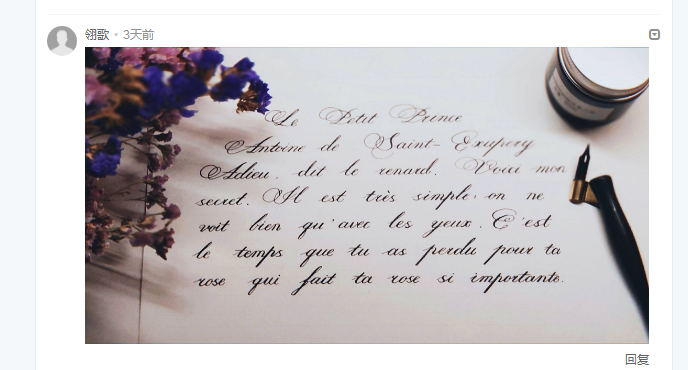 翎歌 • 3天前
Le Petit Prince
Antoine de Saint-Exupery
Adieu. dit le renard. Voici mon
secret. Il est très simple: on ne
voit bien qu'avec les yeux. C'est
le temps que tu as perdu pour ta
rose qui fait ta rose si importante.
回复